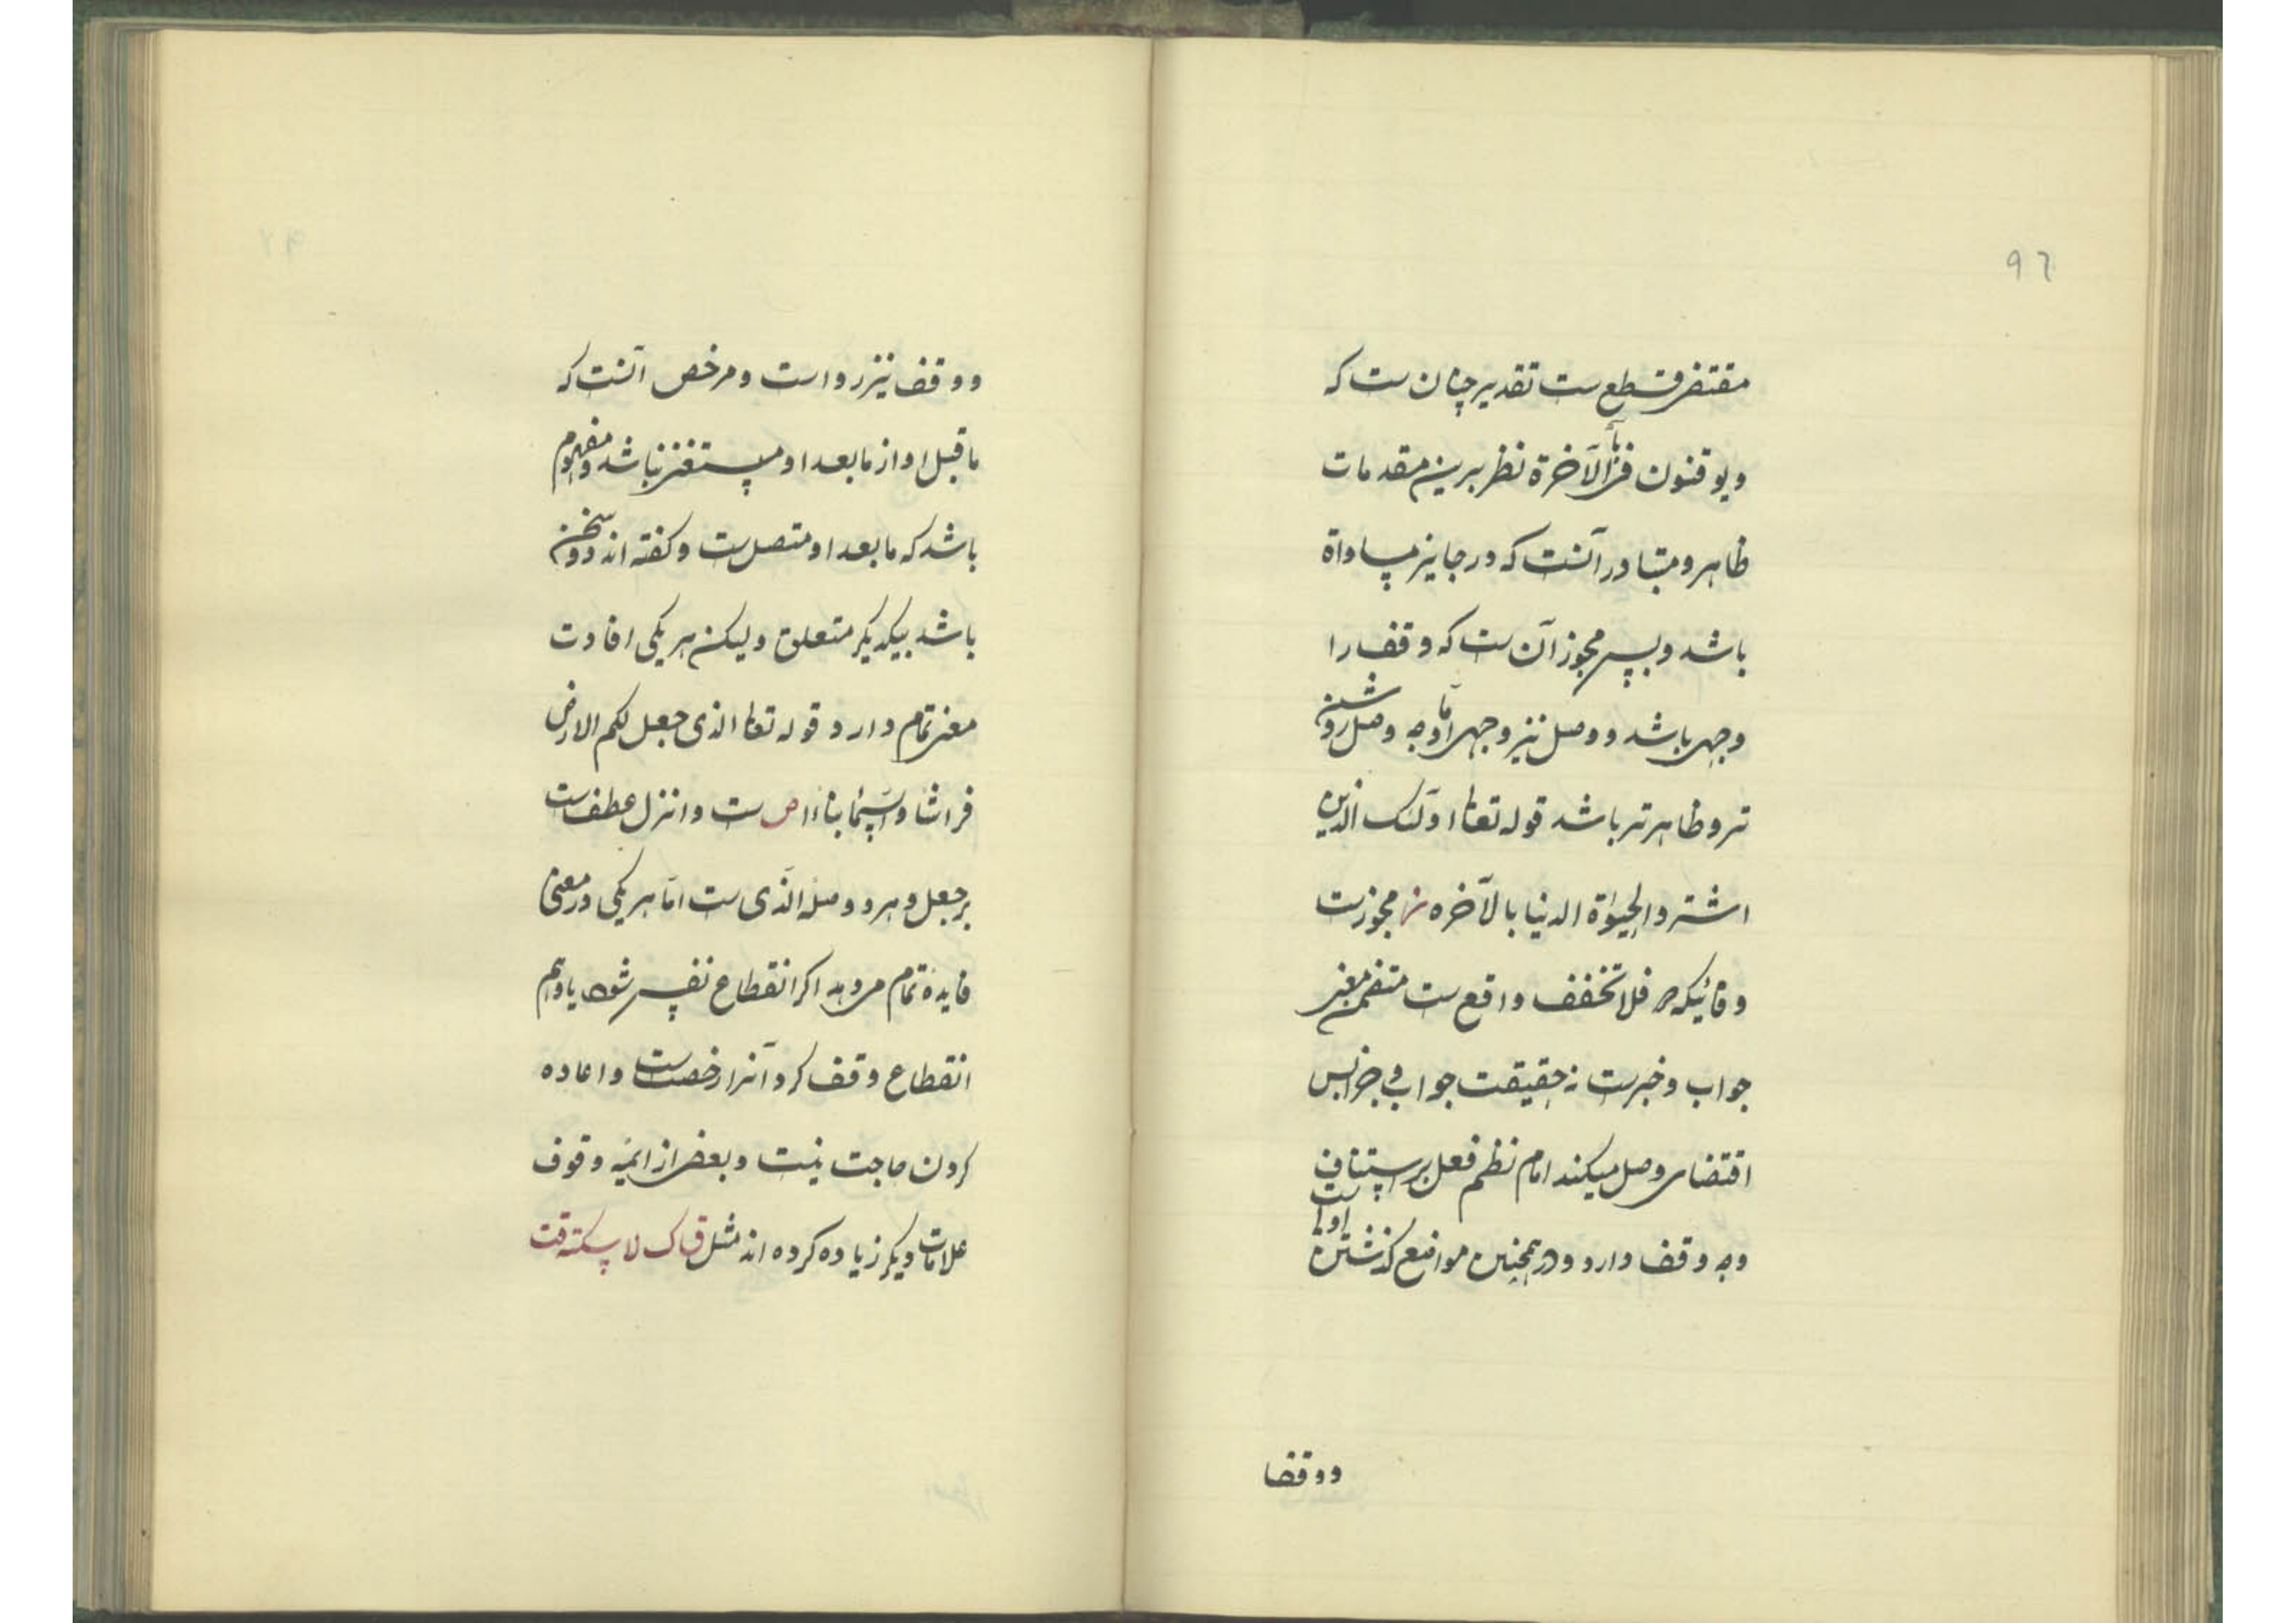 ٩٦
مقتضی قطع ست تقدیر چنان ست که
ویوقنون بالآخرة نظر برین مقدمات
ظاهر و متبادر آنست که در جایز مساواة
باشد و بس مجوز آن ست که وقف را
وجهی باشد و وصل نیز وجهی اما وجه وصل روشن
تر و ظاهر تر باشد قوله تعالی اولئک الذین
اشتروا الحیوة الدنیا بالآخره ز مجوزست
و فائیکه در فلا تخفف واقع ست متضمن معنی
جواب و خبرست نه حقیقت جواب و جزا پس
اقتضای وصل میکند اما نظم فعل بر استیناف ست
وجه وقف دارد و در همچنین مواضع گذشتن اولی
ووقفا
ووقف نیز رواست و مرخص آنست که
ماقبل او از مابعد او مستغنی نباشد و مفهوم
باشد که مابعد او متصل ست و گفته اند دو سخن
باشد بیکدیگر متعلق ولیکن هر یکی افادت
معنی تمام دارد قوله تعالی الذی جعل لکم الارض
فراشا والسمآء بنآءا ص ست وانزل عطف ست
بر جعل و هر دو صله الذی ست اما هر یکی در معنی
فایدهٔ تمام میدهد اگر انقطاع نفس شود یا وهم
انقطاع وقف کرد آنرا رخصت ست و اعاده
کردن حاجت نیست و بعضی از ائمه وقوف
علامات دیگر زیاده کرده اند مثل ق ک لا سکته قت